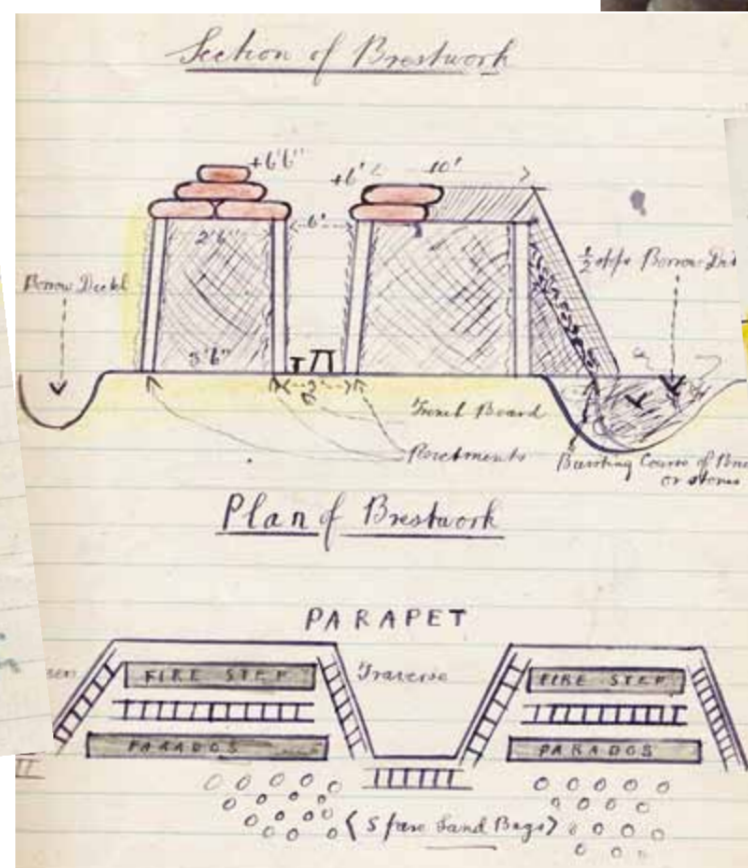 Section of Brestwork
+6'6"
+6' 10'
2'6" 6'
½ offo Borrow
Borrow
3'6"
2'
Trench Board
Revetments
Bursting Course of
or stones
Plan of Brestwork
PARAPET
FIRE STEP Traverse FIRE STEP
PARADOS PARADOS
(Spare Sand Bags)